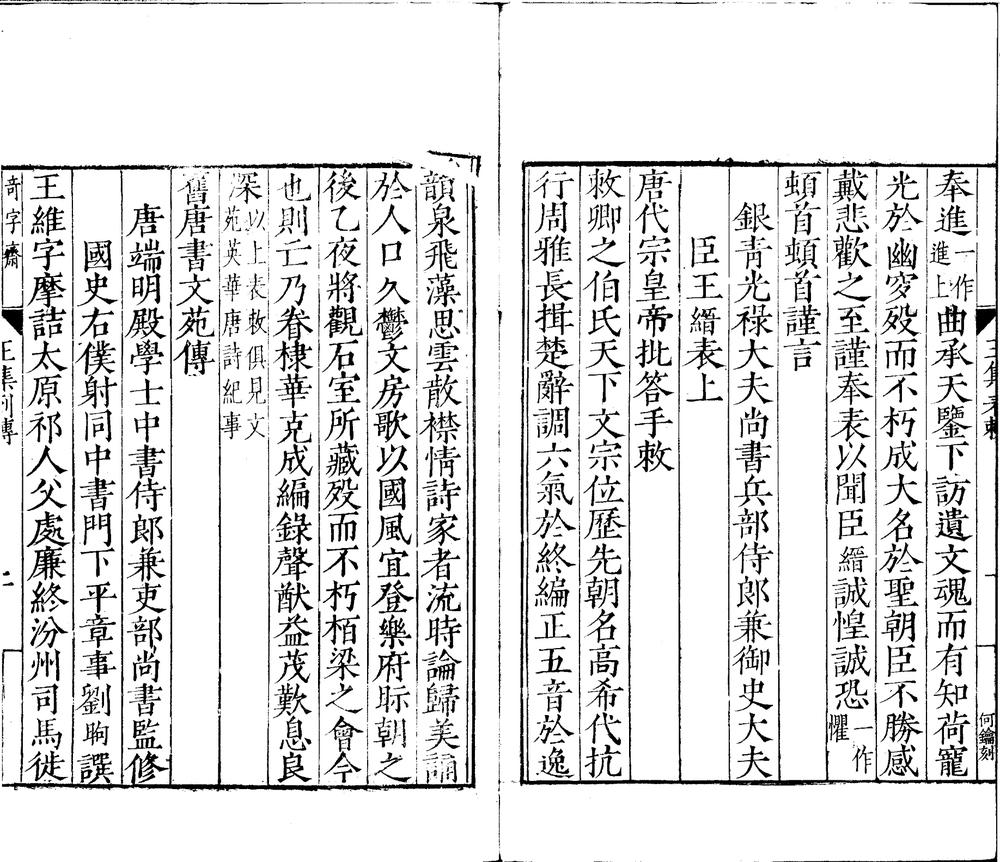 奉進一作進上曲承天鑒下訪遺文魂而有知荷寵
光於幽穸歿而不朽成大名於聖朝臣不勝感
戴悲歡之至謹奉表以聞臣縉誠惶誠恐一作懼
頓首頓首謹言
銀青光祿大夫尚書兵部侍郎兼御史大夫
臣王縉表上
唐代宗皇帝批答手敕
敕卿之伯氏天下文宗位歷先朝名高希代抗
行周雅長揖楚辭調六氣於終編正五音於逸
韻泉飛藻思雲散襟情詩家者流時論歸美誦
於人口久鬱文房歌以國風宜登樂府眎朝之
後乙夜將觀石室所藏歿而不朽栢梁之會今
也則亡乃眷棣華克成編錄聲猷益茂歎息良
深以上表敕俱見文苑英華唐詩紀事
舊唐書文苑傳
唐端明殿學士中書侍郎兼吏部尚書監修
國史右僕射同中書門下平章事劉昫譔
王維字摩詰太原祁人父處廉終汾州司馬徙
奇字齋
王集列傳
何鑰刻